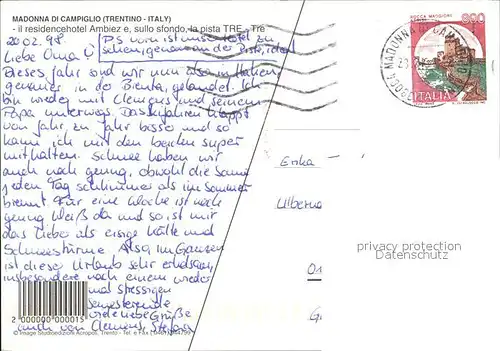 MADONNA DI CAMPIGLIO (TRENTINO - ITALY)
- il residencehotel Ambiez e, sullo sfondo, la pista TRE - Tre
20.02.98
PS vorn ist unser Hotel zu
sehen, genau an der Piste, idea
Liebe Oma Ü
Dieses Jahr sind wir nun also in Italien,
genauer in der Brenta, gelandet. Ich
bin wieder mit Clemens und seinem
Papa unterwegs. Das Skifahren klappt
von Jahr zu Jahr besser und so
kann ich mit den beiden super
mithalten. Schnee haben wir
auch noch genug, obwohl die Sonne
jeden Tag schlimmer als im Sommer
brennt. Für eine Woche ist noch
genug Weiß da und so ist mir
das lieber als eisige Kälte und
Schneestürme. Also im Ganzen
ist dieser Urlaub sehr erholsam,
insbesondere nach einem wieder
und stressigen
Semesterende
viele liebe Grüße
auch von Clemens, Stefanie
2 000000 000015
© Image Studioedizioni Acropoli, Trento - Tel. e Fax
ROCCA MAGGIORE
800
ITALIA
MADONNA DI CAMP
Erika
Ulbern
01
G
privacy protection
Datenschutz